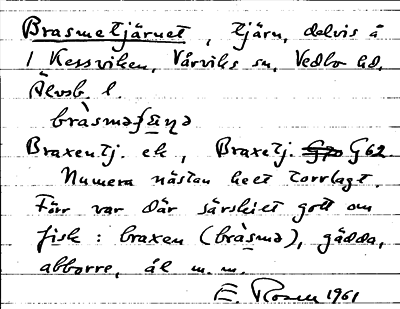 Brasmetjärnet, tjärn, delvis å
/ Kessviken, Vårviks sn, Vedbo hd,
Älvsb. l.
bràsməʃæ̀ṇə
Braxentj. ek, Braxetj. G62.
Numera nästan helt torrlagt.
Förr var där särskilt gott om
fisk: braxen (bràsmə), gädda,
abborre, ål m. m.
E. Rosen 1961